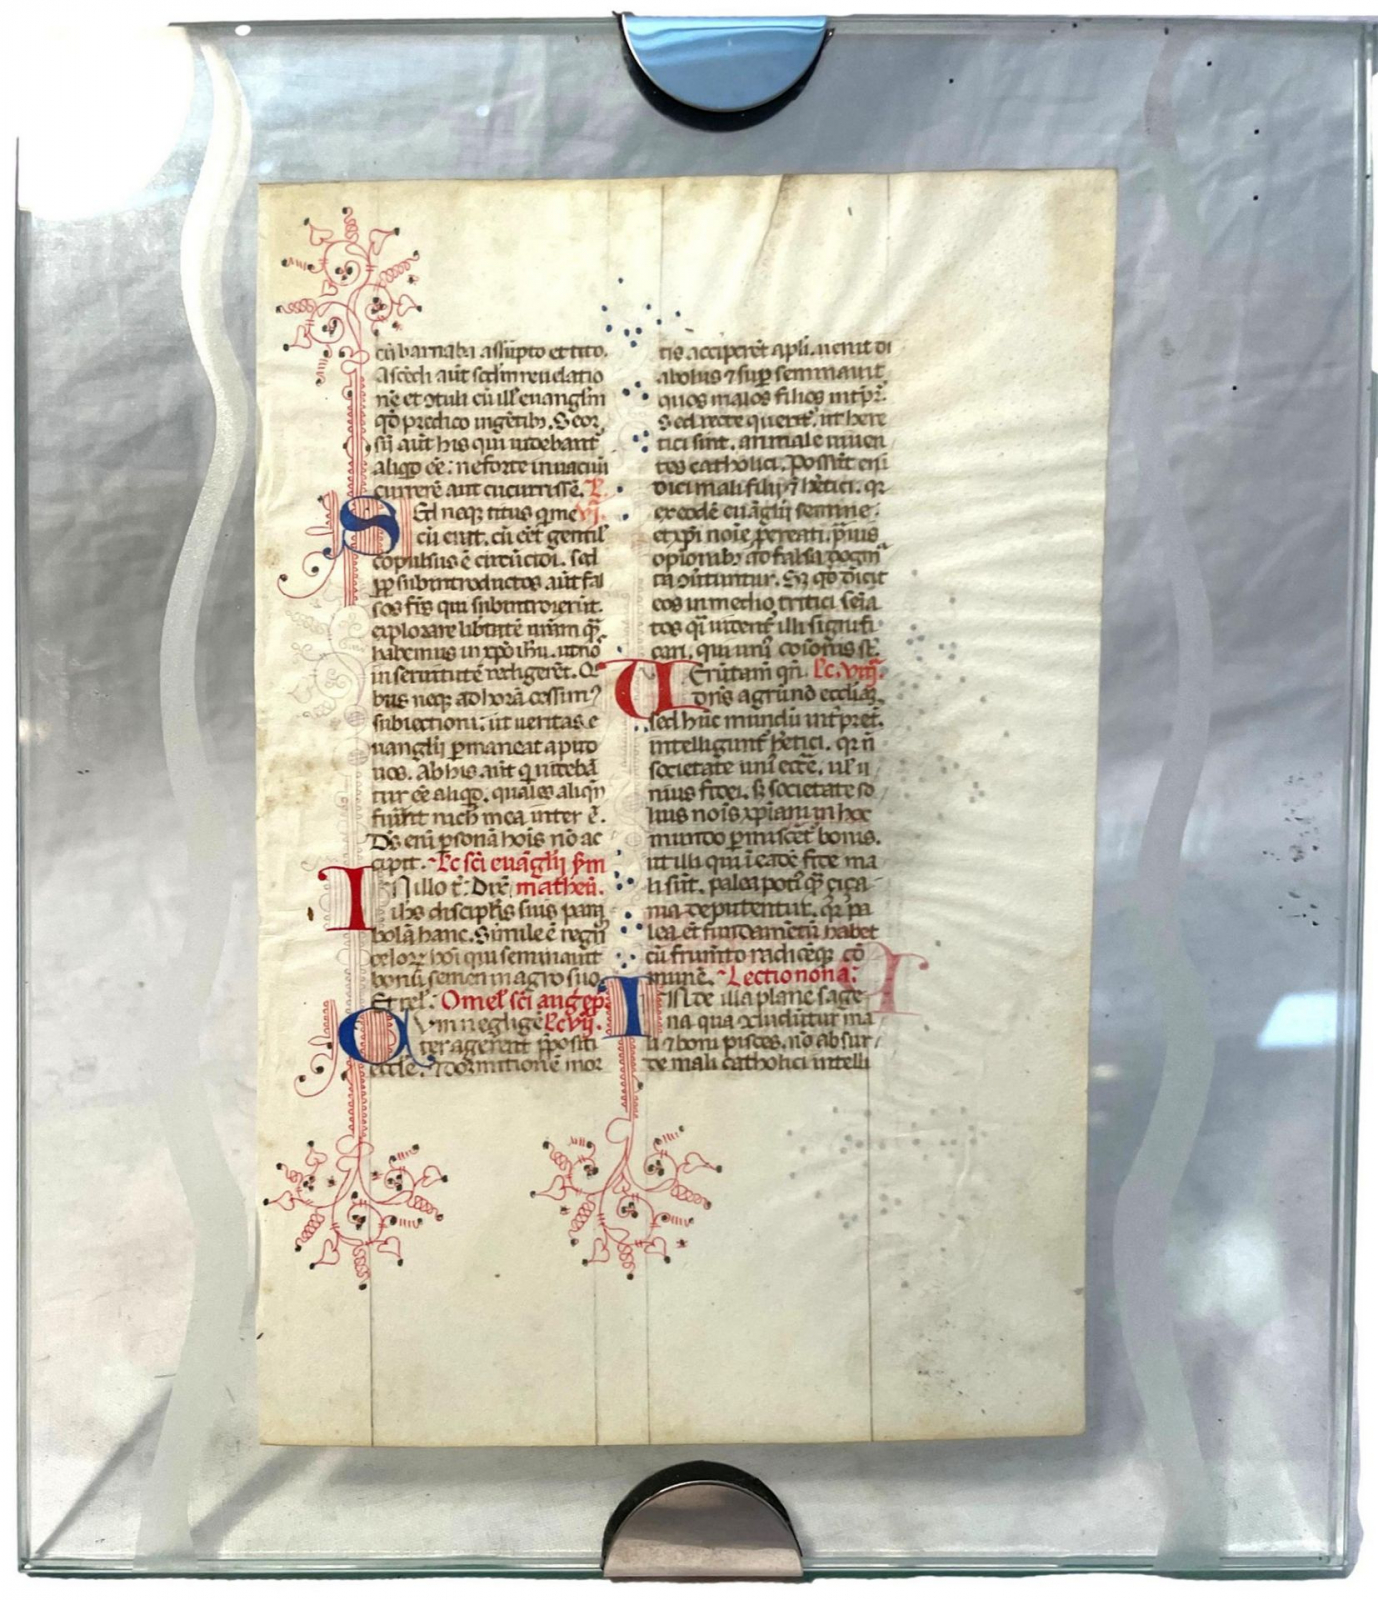 cū barnaba assūpto et tito.
Ascēdi aūt scđm reuelatio
nē et ɔtuli cū ill' euangłm
qđ predico in gētib;. Seor
sū aūt his qui uidebant᷑
aliqđ eē: ne forte in uacuū
currerē aut cucurrissē. L.
Sed neq; titus q' mecū vi.
erat. cū eēt gentil'
cōpulsus ē circūcidi. sed
ꝓp̄ subintroductos aūt fal
sos fr̄s qui subintroierūt.
explorare lib̄tatē nr̄am q̄̄
habemus in xp̄o ih̄u. ut nō
in seruitutē redigerēt. Q'
bus neq; ad horā cessim᷒
subiectioni: ut ueritas e
uanglij p̱maneat apud
uos. Ab his aūt q' uidebā
tur eē aliqđ. quales aliqn̄
fuerīt nich' mea inter ē.
D's eni p̱sonā hois nō ac
cipit. Lc̄ sc̄i euāglij s'm
In illo t̄: Dix̄ matheū.
ih̄s discipl'is suis parā
bolā hanc. Simile ē regnū
celoꝝ hoi qui seminauit
bonū semen in agro suo.
Et rel'. Omel' sc̄i augep̄i
Cum neglige Lc̄ vij.
ter agerent p̄positi
eccl'e. ⁊ dormitionē mor
tis acciperēt apl'i. uenit di
abolus ⁊ sup̱ seminauit
quos malos filios int̄p̄t᷑.
Sed recte querit᷑. ut here
tici sint. an male uiuen
tes catholici. Possūt eni
dici mali filij ⁊ h̄etici. qr
ex eodē euāglij semine.
et xp̄i noīe p̱creati. p̄uis
opionib; ad falsa dogm̄
ta ɔūtuntur. S; qđ dicit
eos in medio tritici semīa
tos q' uident᷑ illi signifi
cari. qui uni' cōīonis s̄t.
Uerūtam̄ qn̄ Lc̄. viij.
dn̄s agrū nō eccl'iam
sed hūc mundū int̄pret᷑.
intelligunt᷑ h̄etici. qr n̄
societate uni' ecc'e. uel u
nius fidei. s; societate so
lius nois xp̄iani in hoc
mundo p̱miscet᷑ bonis.
ut illi qui ī eadē fide ma
li sūt. palea poti' q̄̄ ciça
nia deputentur. qr pa
lea et fundamentū habet
cū frumto radicēq; cō
munē. Lectio nona.
In iste illa plane sage
na qua ɔcludūtur ma
li ⁊ boni pisces. nō absur
de mali catholici intelli